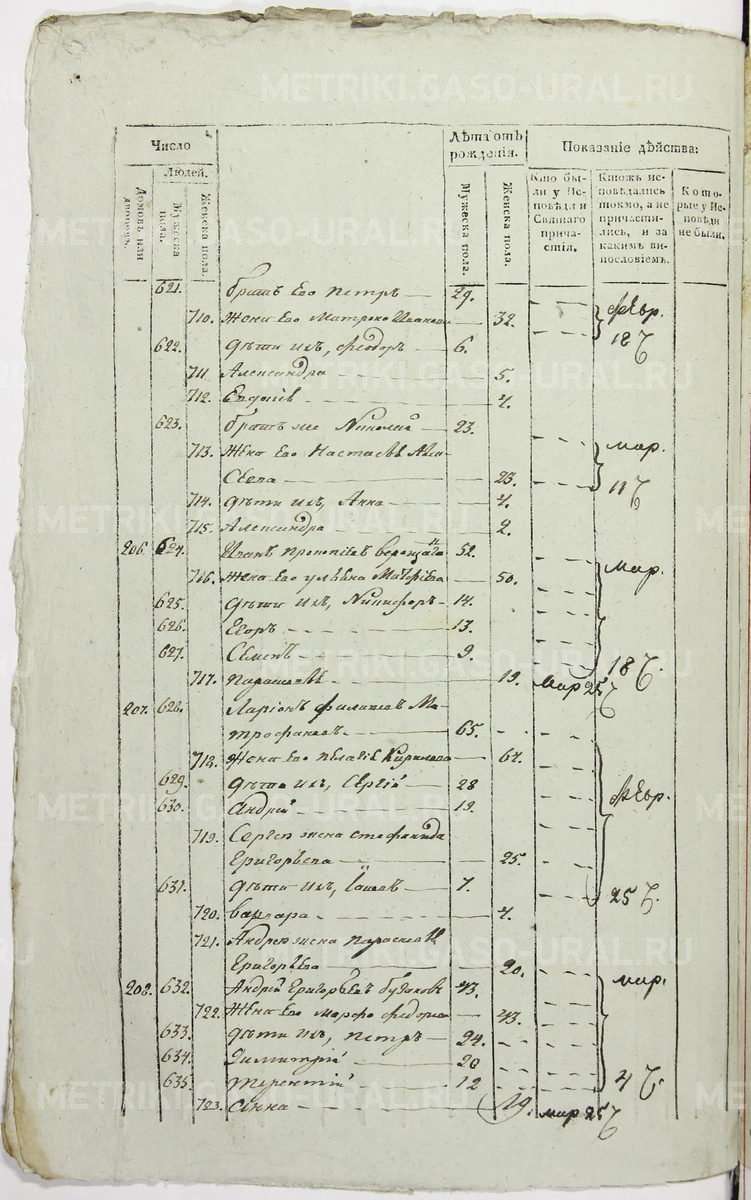 Число
Людей.
Домовъ или дворовъ.
Мужеска пола.
Женска пола.
Лѣта отъ рожденія.
Мужеска пола.
Женска пола.
Показаніе дѣйства:
Кто были у Исповѣди и Святаго причастія.
Ктожъ исповѣдались токмо, а не причастились, и за какимъ винословіемъ.
Которые у Исповѣди не были.
621. братъ Его Петръ 29.
710. Жена Его Матрона Иванова 32. Февр.
622. дѣти ихъ, Феодоръ 6. 18
711 Александра 5.
712. Евдокія 4.
623. братъ же Николай 23.
713. Жена Его Настасья мар.
23.
714. дѣти ихъ, Анна 4. 11
715. Александра 2.
206. 624. Иванъ Прокопіевъ 52.
716. Жена Его Ульяна 50. мар.
625. дѣти ихъ, Никифоръ 14.
626. Егоръ 13.
627. Семенъ 9. 18
717. Параскева 19. мар 25
207. 628. Ларіонъ Филиповъ Ми-
трофановъ 65.
718. Жена Его Пелагія Кирилова 64.
629. дѣти ихъ, Сергій 28 Февр.
630. Андрей 19.
719. Сергея жена Стефанида
Григорьева 25.
631. дѣти ихъ, 7. 25
720. Варвара 4.
721. Андрея жена Параскева
Григорьева 20.
208. 632. Андрей Григорьевъ 43. мар.
722. Жена Его 43.
633. дѣти ихъ, Петръ 24.
634. Димитрій 20
635. Терентій 12 4
723. Анна 19. мар 25
METRIKI.GASO-URAL.RU